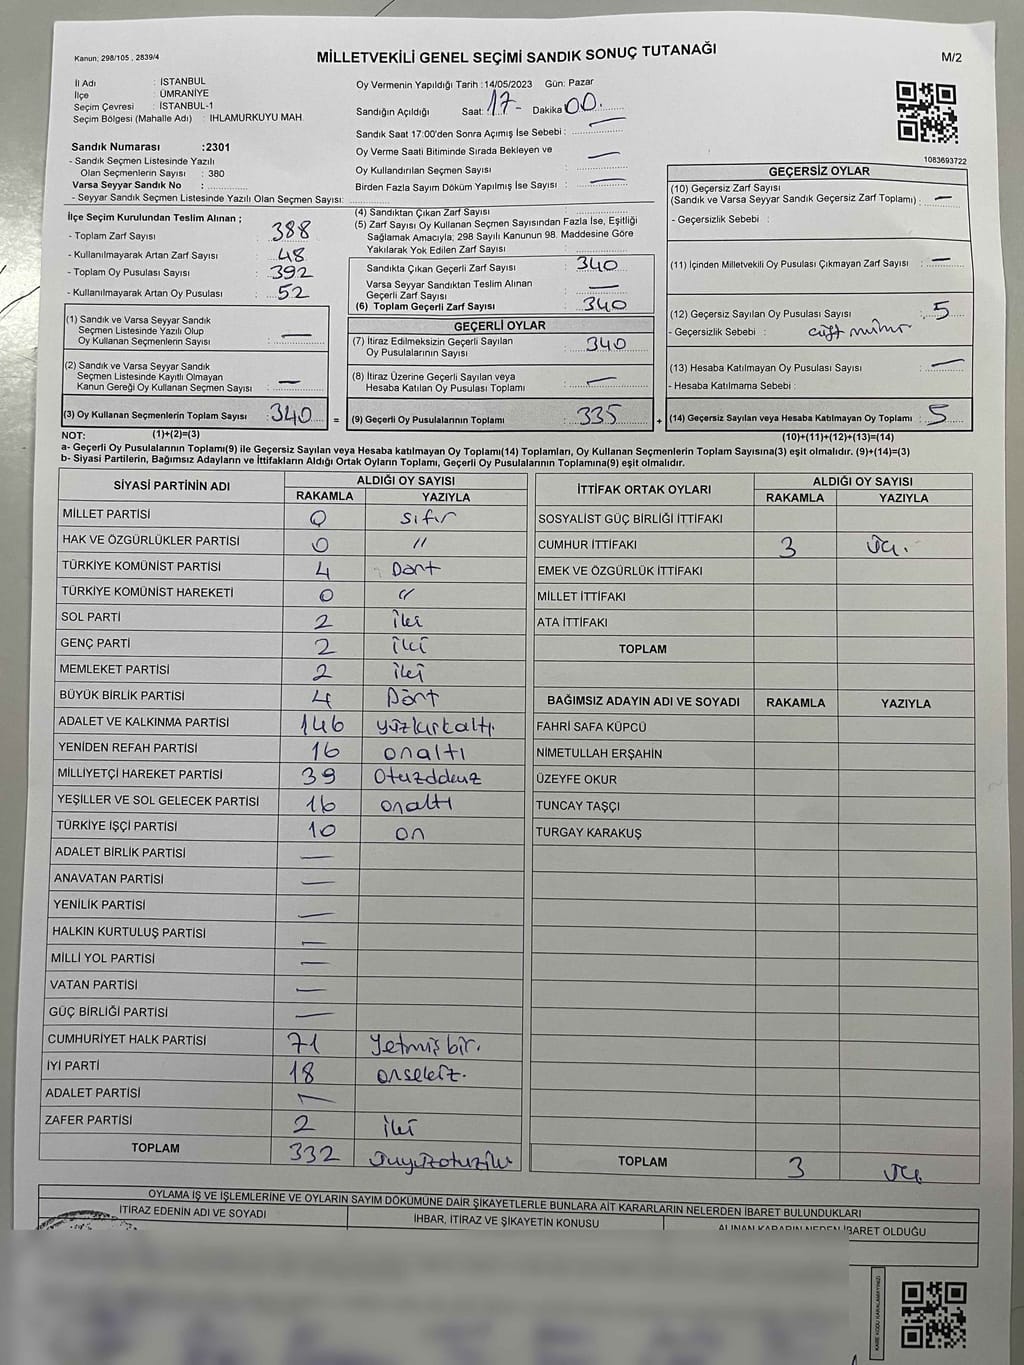 Kanun; 298/105 , 2839/4
MİLLETVEKİLİ GENEL SEÇİMİ SANDIK SONUÇ TUTANAĞI
M/2
İl Adı : İSTANBUL
İlçe : ÜMRANİYE
Seçim Çevresi : İSTANBUL-1
Seçim Bölgesi (Mahalle Adı) : IHLAMURKUYU MAH.
Sandık Numarası :2301
- Sandık Seçmen Listesinde Yazılı
Olan Seçmenlerin Sayısı : 380
Varsa Seyyar Sandık No :
- Seyyar Sandık Seçmen Listesinde Yazılı Olan Seçmen Sayısı:
Oy Vermenin Yapıldığı Tarih :14/05/2023 Gün: Pazar
Sandığın Açıldığı Saat: 17- Dakika 00.
Sandık Saat 17:00'den Sonra Açımış İse Sebebi : —
Oy Verme Saati Bitiminde Sırada Bekleyen ve
Oy Kullandırılan Seçmen Sayısı : —
Birden Fazla Sayım Döküm Yapılmış İse Sayısı : —
1083693722
İlçe Seçim Kurulundan Teslim Alınan ;
- Toplam Zarf Sayısı : 388
- Kullanılmayarak Artan Zarf Sayısı : 48
- Toplam Oy Pusulası Sayısı : 392
- Kullanılmayarak Artan Oy Pusulası : 52
(1) Sandık ve Varsa Seyyar Sandık
Seçmen Listesinde Yazılı Olup
Oy Kullanan Seçmenlerin Sayısı : —
(2) Sandık ve Varsa Seyyar Sandık
Seçmen Listesinde Kayıtlı Olmayan
Kanun Gereği Oy Kullanan Seçmen Sayısı : —
(3) Oy Kullanan Seçmenlerin Toplam Sayısı : 340 =
(1)+(2)=(3)
(4) Sandıktan Çıkan Zarf Sayısı :
(5) Zarf Sayısı Oy Kullanan Seçmen Sayısından Fazla İse, Eşitliği
Sağlamak Amacıyla; 298 Sayılı Kanunun 98. Maddesine Göre
Yakılarak Yok Edilen Zarf Sayısı :
Sandıkta Çıkan Geçerli Zarf Sayısı : 340
Varsa Seyyar Sandıktan Teslim Alınan
Geçerli Zarf Sayısı : —
(6) Toplam Geçerli Zarf Sayısı : 340
GEÇERLİ OYLAR
(7) İtiraz Edilmeksizin Geçerli Sayılan
Oy Pusulalarının Sayısı : 340
(8) İtiraz Üzerine Geçerli Sayılan veya
Hesaba Katılan Oy Pusulası Toplamı : —
(9) Geçerli Oy Pusulalarının Toplamı : 335 +
GEÇERSİZ OYLAR
(10) Geçersiz Zarf Sayısı
(Sandık ve Varsa Seyyar Sandık Geçersiz Zarf Toplamı) : —
- Geçersizlik Sebebi :
(11) İçinden Milletvekili Oy Pusulası Çıkmayan Zarf Sayısı : —
(12) Geçersiz Sayılan Oy Pusulası Sayısı : 5
- Geçersizlik Sebebi : çift mühür
(13) Hesaba Katılmayan Oy Pusulası Sayısı : —
- Hesaba Katılmama Sebebi :
(14) Geçersiz Sayılan veya Hesaba Katılmayan Oy Toplamı : 5
(10)+(11)+(12)+(13)=(14)
NOT:
a- Geçerli Oy Pusulalarının Toplamı(9) ile Geçersiz Sayılan veya Hesaba katılmayan Oy Toplamı(14) Toplamları, Oy Kullanan Seçmenlerin Toplam Sayısına(3) eşit olmalıdır. (9)+(14)=(3)
b- Siyasi Partilerin, Bağımsız Adayların ve İttifakların Aldığı Ortak Oyların Toplamı, Geçerli Oy Pusulalarının Toplamına(9) eşit olmalıdır.
SİYASİ PARTİNİN ADI ALDIĞI OY SAYISI
RAKAMLA YAZIYLA
MİLLET PARTİSİ 0 sıfır
HAK VE ÖZGÜRLÜKLER PARTİSİ 0 "
TÜRKİYE KOMÜNİST PARTİSİ 4 Dört
TÜRKİYE KOMÜNİST HAREKETİ 0 "
SOL PARTİ 2 iki
GENÇ PARTİ 2 iki
MEMLEKET PARTİSİ 2 iki
BÜYÜK BİRLİK PARTİSİ 4 Dört
ADALET VE KALKINMA PARTİSİ 146 yüzkırkaltı.
YENİDEN REFAH PARTİSİ 16 onaltı
MİLLİYETÇİ HAREKET PARTİSİ 39 Otuzdokuz
YEŞİLLER VE SOL GELECEK PARTİSİ 16 onaltı
TÜRKİYE İŞÇİ PARTİSİ 10 on
ADALET BİRLİK PARTİSİ —
ANAVATAN PARTİSİ —
YENİLİK PARTİSİ —
HALKIN KURTULUŞ PARTİSİ —
MİLLİ YOL PARTİSİ —
VATAN PARTİSİ —
GÜÇ BİRLİĞİ PARTİSİ —
CUMHURİYET HALK PARTİSİ 71 Yetmişbir.
İYİ PARTİ 18 onsekiz.
ADALET PARTİSİ —
ZAFER PARTİSİ 2 iki
TOPLAM 332 üçyüzotuziki
İTTİFAK ORTAK OYLARI ALDIĞI OY SAYISI
RAKAMLA YAZIYLA
SOSYALİST GÜÇ BİRLİĞİ İTTİFAKI
CUMHUR İTTİFAKI 3 üç.
EMEK VE ÖZGÜRLÜK İTTİFAKI
MİLLET İTTİFAKI
ATA İTTİFAKI
TOPLAM
BAĞIMSIZ ADAYIN ADI VE SOYADI RAKAMLA YAZIYLA
FAHRİ SAFA KÜPCÜ
NİMETULLAH ERŞAHİN
ÜZEYFE OKUR
TUNCAY TAŞÇI
TURGAY KARAKUŞ
TOPLAM 3 üç.
OYLAMA İŞ VE İŞLEMLERİNE VE OYLARIN SAYIM DÖKÜMÜNE DAİR ŞİKAYETLERLE BUNLARA AİT KARARLARIN NELERDEN İBARET BULUNDUKLARI
İTİRAZ EDENİN ADI VE SOYADI
İHBAR, İTİRAZ VE ŞİKAYETİN KONUSU
ALINAN KARARIN NEDEN İBARET OLDUĞU
KARE KODU KARALAMAYINIZ!